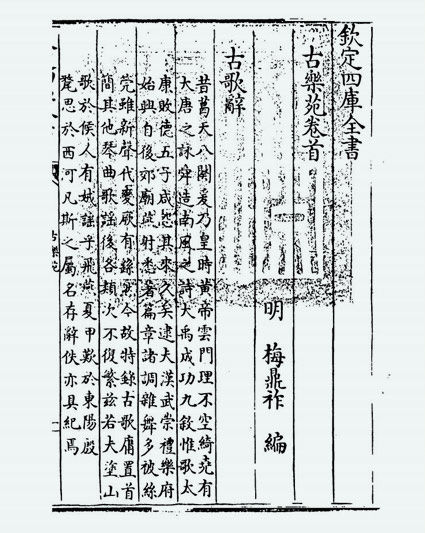 欽定四庫全書
古樂苑卷首
明 梅鼎祚 編
古歌辭
昔葛天八闋爰乃皇時黄帝雲門理不空綺堯有
大唐之詠舜造南風之詩大禹成功九敘惟歌太
康敗德五子咸怨其來久矣逮大漢武崇禮樂府
始興自後郊廟燕射悉著篇章諸調雜舞多被絲
筦雖新聲代變厥有繇
今故特録古歌庸置首
簡其他琴曲歌謡後各類次不復繁兹若大塗山
歌於候人有娀謡乎飛燕夏甲歎於東陽殷
氂思於西河凡斯之屬名存辭佚亦具紀焉